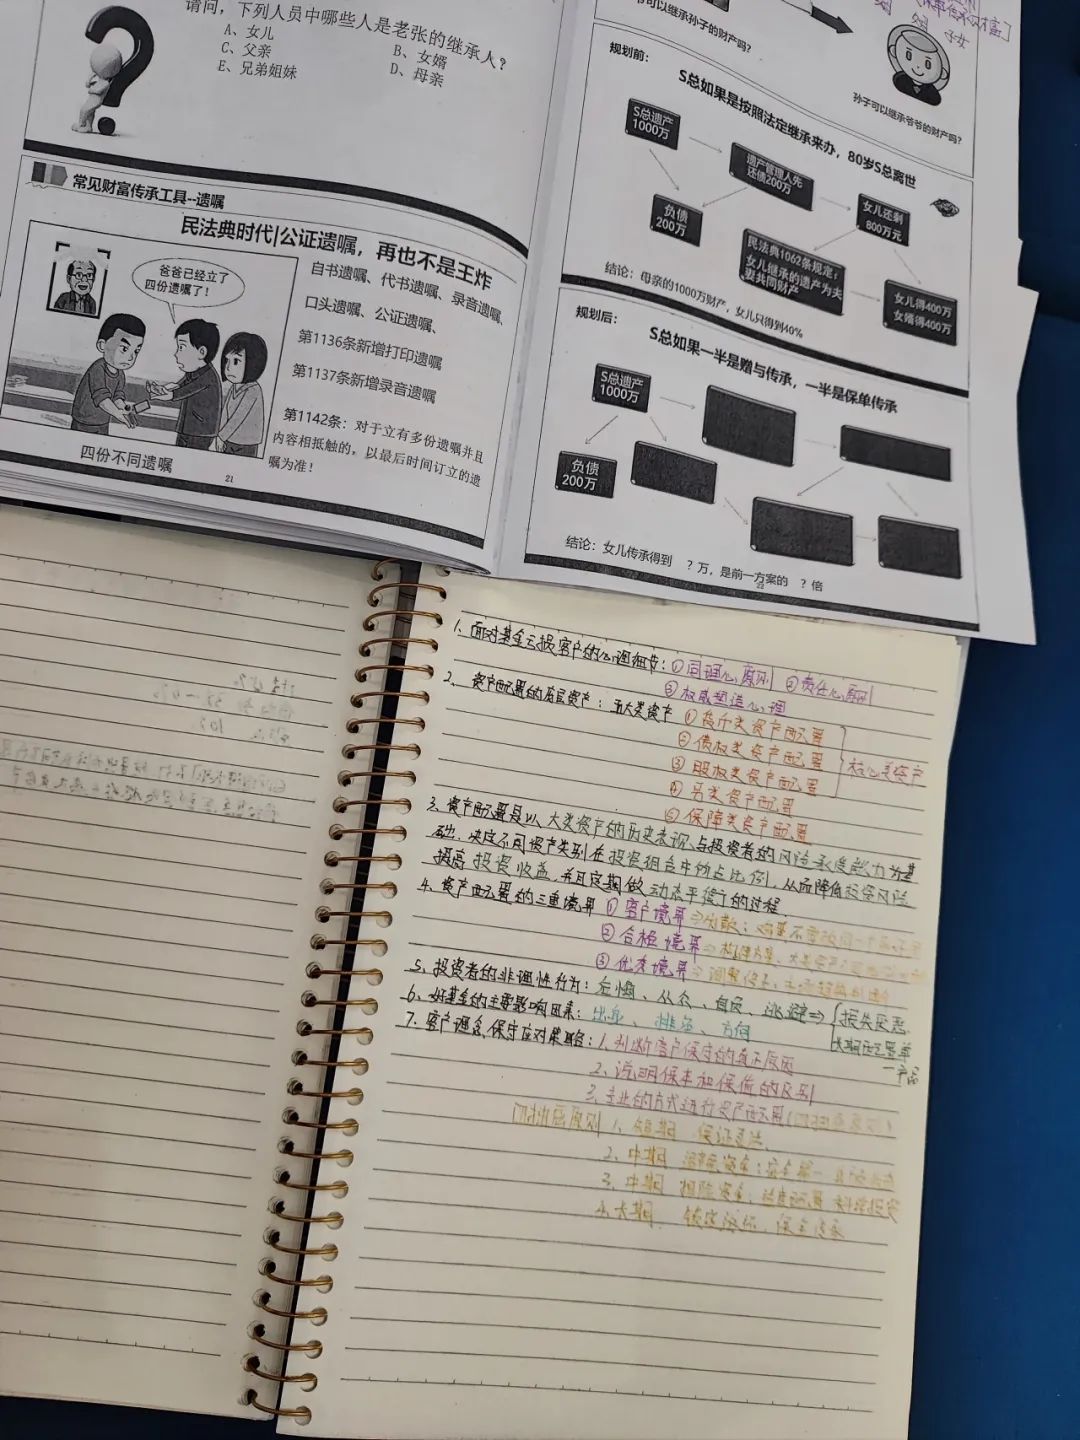 请问，下列人员中哪些人是老张的继承人？
A、女儿
B、女婿
C、父亲
D、母亲
E、兄弟姐妹
常见财富传承工具--遗嘱
民法典时代|公证遗嘱，再也不是王炸
爸爸已经立了
四份遗嘱了！
自书遗嘱、代书遗嘱、录音遗嘱、
口头遗嘱、公证遗嘱、
第1136条新增打印遗嘱
第1137条新增录音遗嘱
第1142条：对于立有多份遗嘱并且
内容相抵触的，以最后时间订立的遗
嘱为准！
四份不同遗嘱
21
可以继承孙子的财产吗？
子女
孙子可以继承爷爷的财产吗？
规划前：
S总如果是按照法定继承来办，80岁S总离世
S总遗产
1000万
遗产管理人先
还债200万
女儿还剩
800万元
负债
200万
民法典1062条规定：
女儿继承的遗产为夫
妻共同财产
女儿得400万
女婿得400万
结论：母亲的1000万财产，女儿只得到40%
规划后：
S总如果一半是赠与传承，一半是保单传承
S总遗产
1000万
负债
200万
结论：女儿传承得到 ？万，是前一方案的 ？倍
22
1、面对基金亏损客户的心理细节：①同理心原则 ②责任心原则
③权威塑造心理
2、资产配置的底层资产：五大类资产 ①货币类资产配置
②债权类资产配置
③股权类资产配置
④另类资产配置
⑤保障类资产配置
核心类资产
3、资产配置是以大类资产的历史表现与投资者的风险承受能力为基
础，决定不同资产类别在投资组合中所占比例，从而降低投资风险
提高投资收益，并且定期做动态平衡的过程。
4、资产配置的三重境界 ①客户境界⇒分散：鸡蛋不要放同一个篮子里
②合格境界⇒
③优秀境界⇒
5、投资者的非理性行为：后悔、从众、自负、逃避⇒
损失厌恶
6、好基金的主要影响因素：出身、排名、方向
7、客户理念保守应对策略：1、判断客户保守的真正原因
2、说明保本和保值的区别
3、专业的方式进行资产配置
原则 1、短期 保证灵活
2、中期
3、中期
4、长期